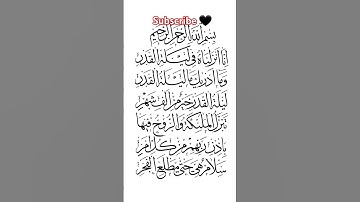 Subscribe 🖤
بِسْمِ اللَّهِ الرَّحْمَٰنِ الرَّحِيمِ
إِنَّا أَنْزَلْنَاهُ فِي لَيْلَةِ الْقَدْرِ
وَمَا أَدْرَاكَ مَا لَيْلَةُ الْقَدْرِ
لَيْلَةُ الْقَدْرِ خَيْرٌ مِنْ أَلْفِ شَهْرٍ
تَنَزَّلُ الْمَلَائِكَةُ وَالرُّوحُ فِيهَا
بِإِذْنِ رَبِّهِمْ مِنْ كُلِّ أَمْرٍ
سَلَامٌ هِيَ حَتَّىٰ مَطْلَعِ الْفَجْرِ